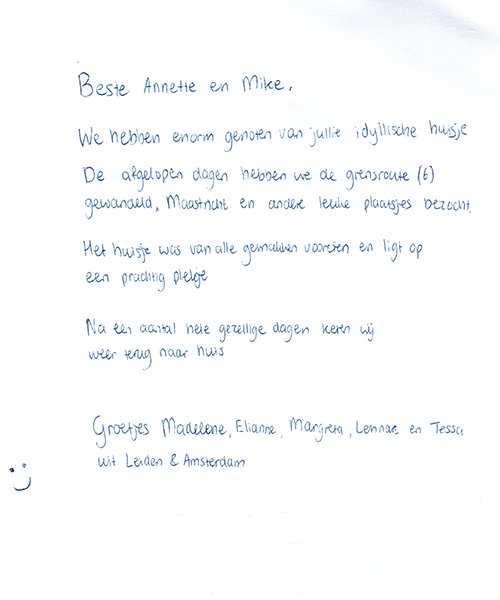 Beste Annette en Mike,
We hebben enorm genoten van jullie idyllische huisje
De afgelopen dagen hebben we de grensroute (6)
gewandeld, Maastricht en andere leuke plaatsjes bezocht.
Het huisje was van alle gemakken voorzien en ligt op
een prachtig plekje
Na een aantal hele gezellige dagen keren wij
weer terug naar huis
Groetjes Madelene, Elianne, Margreta, Lennae en Tessa
uit Leiden & Amsterdam